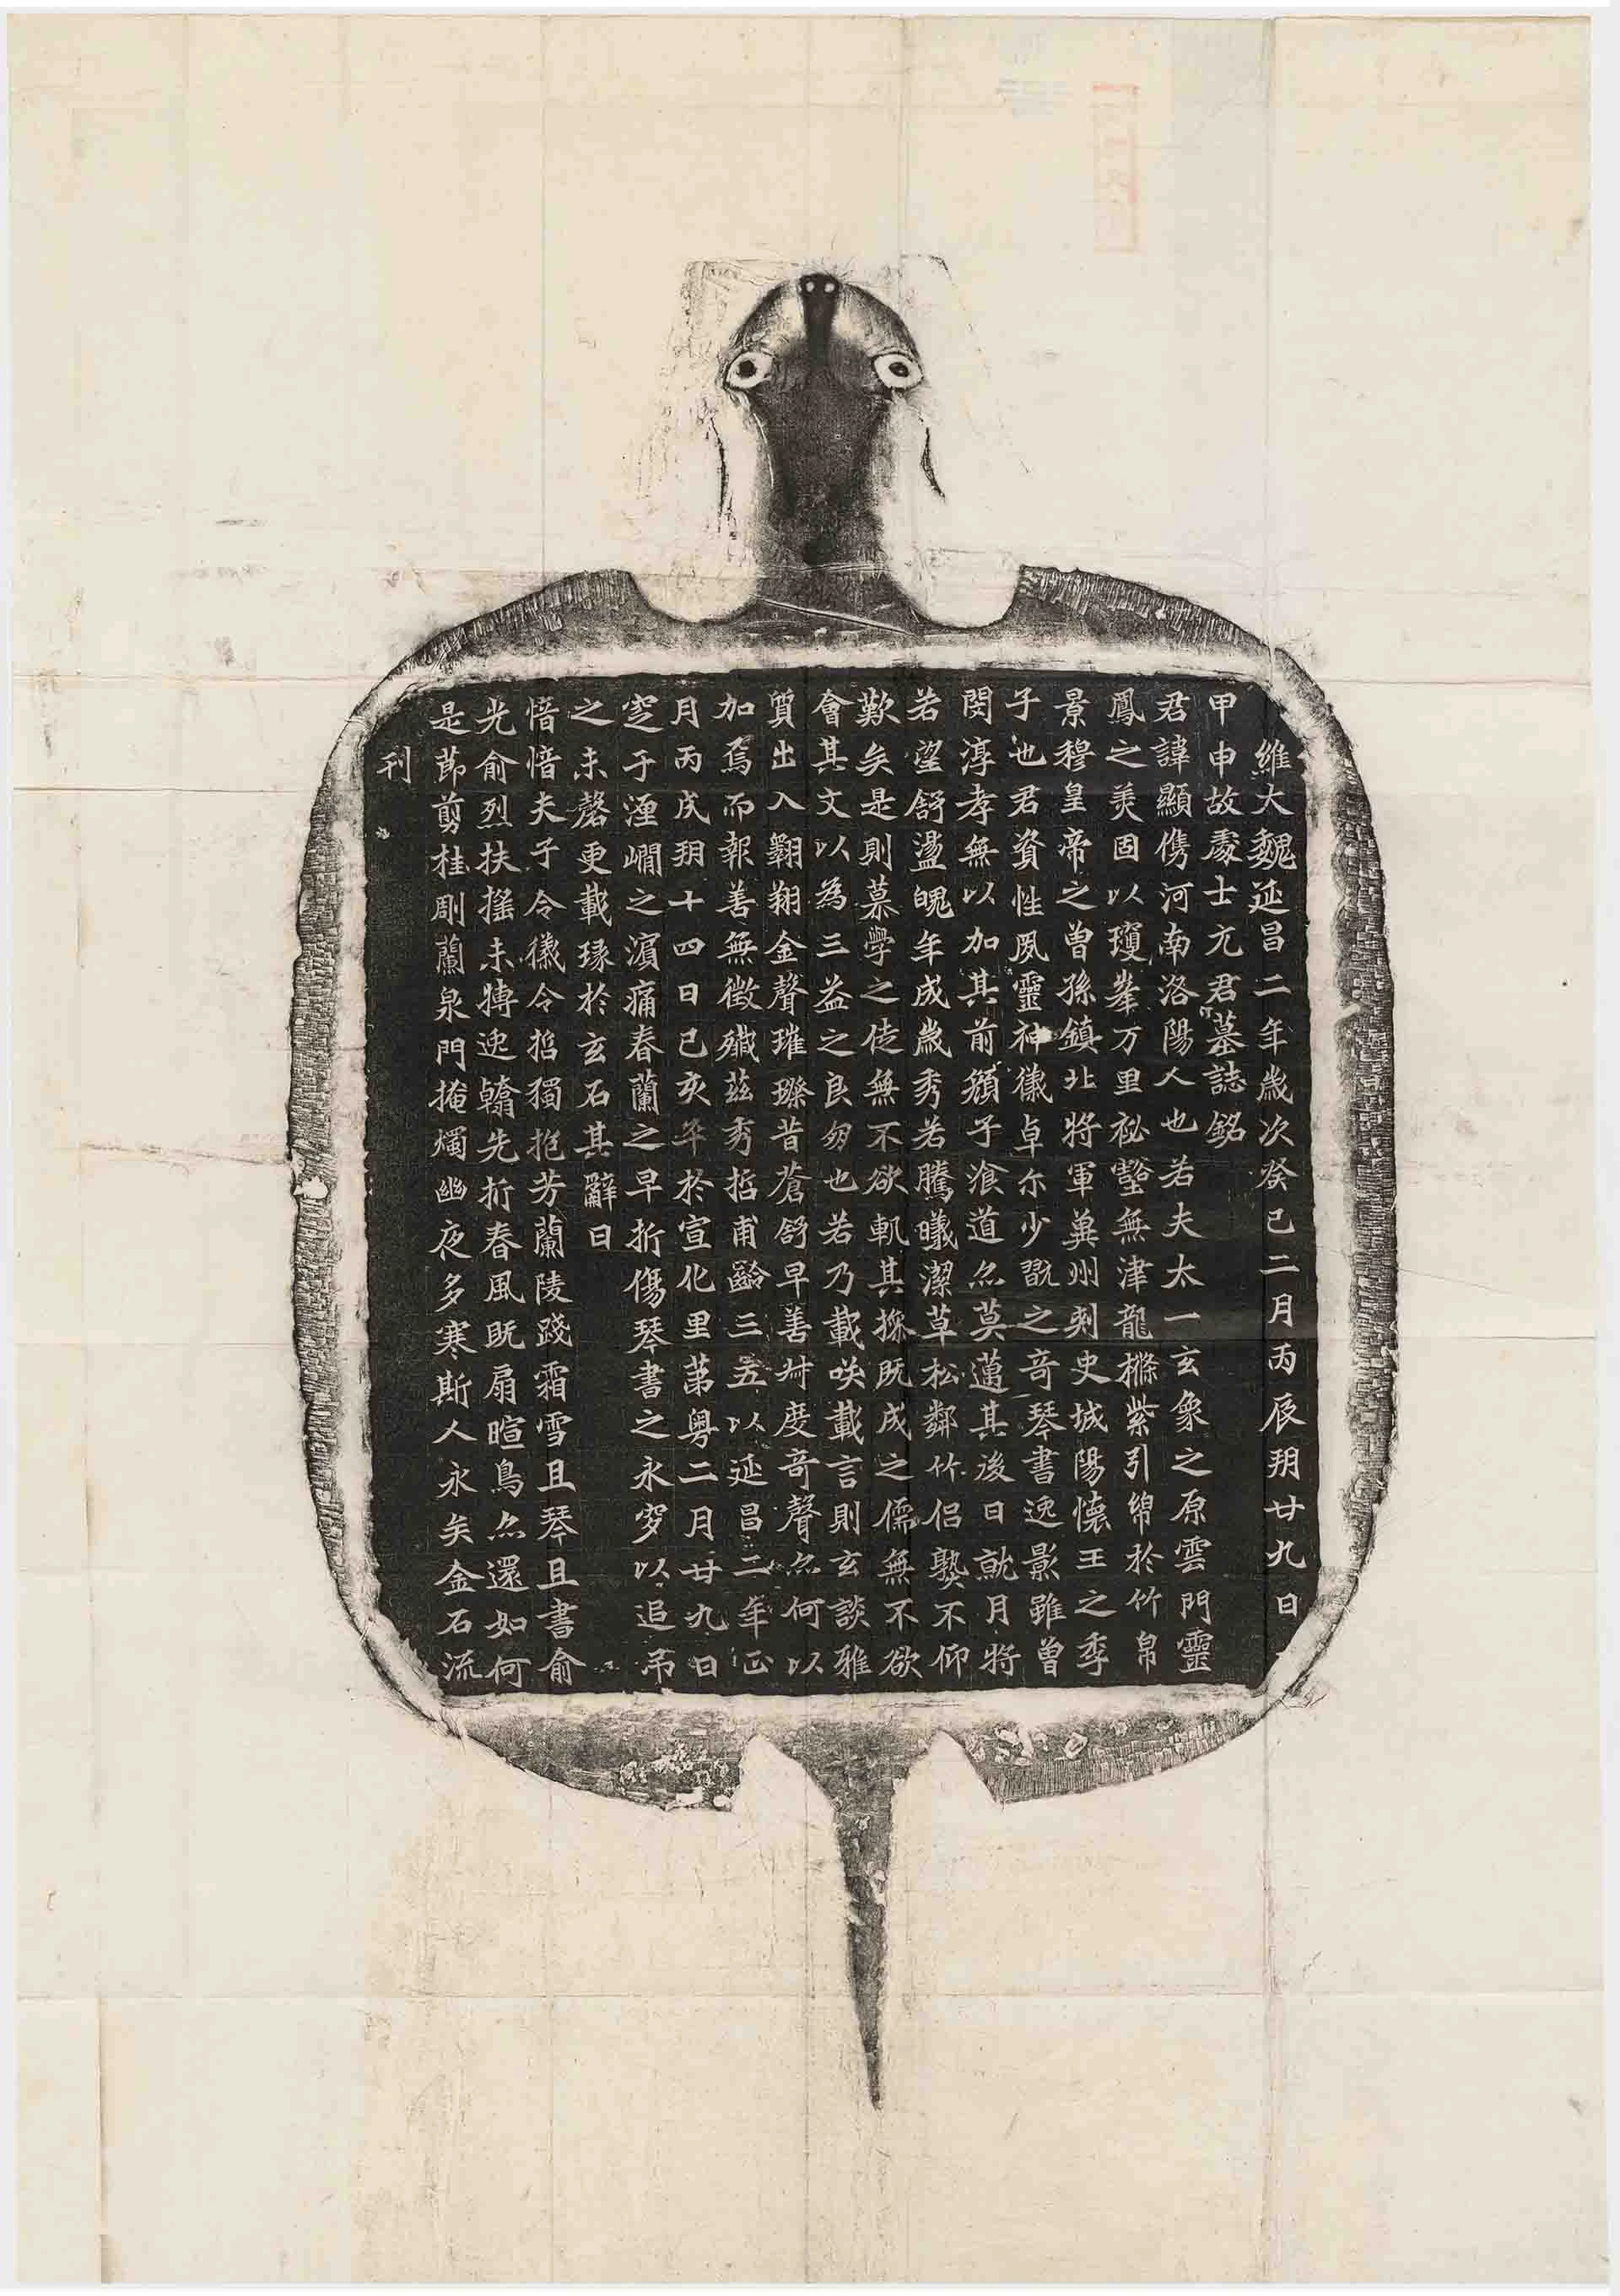 維大魏延昌二年歲次癸巳二月丙辰朔廿九日
甲申故處士元君墓誌銘
君諱顯儁河南洛陽人也若夫太一玄象之原雲門靈
鳳之美固以瓊峯万里祕壑無津龍樤紫引綿於竹帛
景穆皇帝之曾孫鎮北將軍冀州刺史城陽懷王之季
子也君資性夙靈神儀卓尒少翫之奇琴書逸影雖曾
閔淳孝無以加其前顏子湌道亦莫邁其後日就月將
若望舒盪魄年成歲秀若騰曦潔草松鄰竹侶孰不仰
歎矣是則慕學之徒無不欲軌其操既成之儒無不欲
會其文以為三益之良朋也若乃載咲載言則玄談雅
質出入翱翔金聲璀璨昔蒼舒早善叶度奇聲亦何以
加焉而報善無徵殲茲秀哲甫齡三五以延昌二年正
月丙戌朔十四日己亥卒於宣化里第粵二月廿九日
窆于瀍澗之濱痛春蘭之早折傷琴書之永穸以追吊
之未罄更載瑑於玄石其辭曰
愔愔夫子令儀令哲獨抱芳蘭陵踐霜雪且琴且書俞
光俞烈扶搖未搏逸翰先折春風既扇暄鳥亦還如何
是節剪桂彫蘭泉門掩燭幽夜多寒斯人永矣金石流
刊